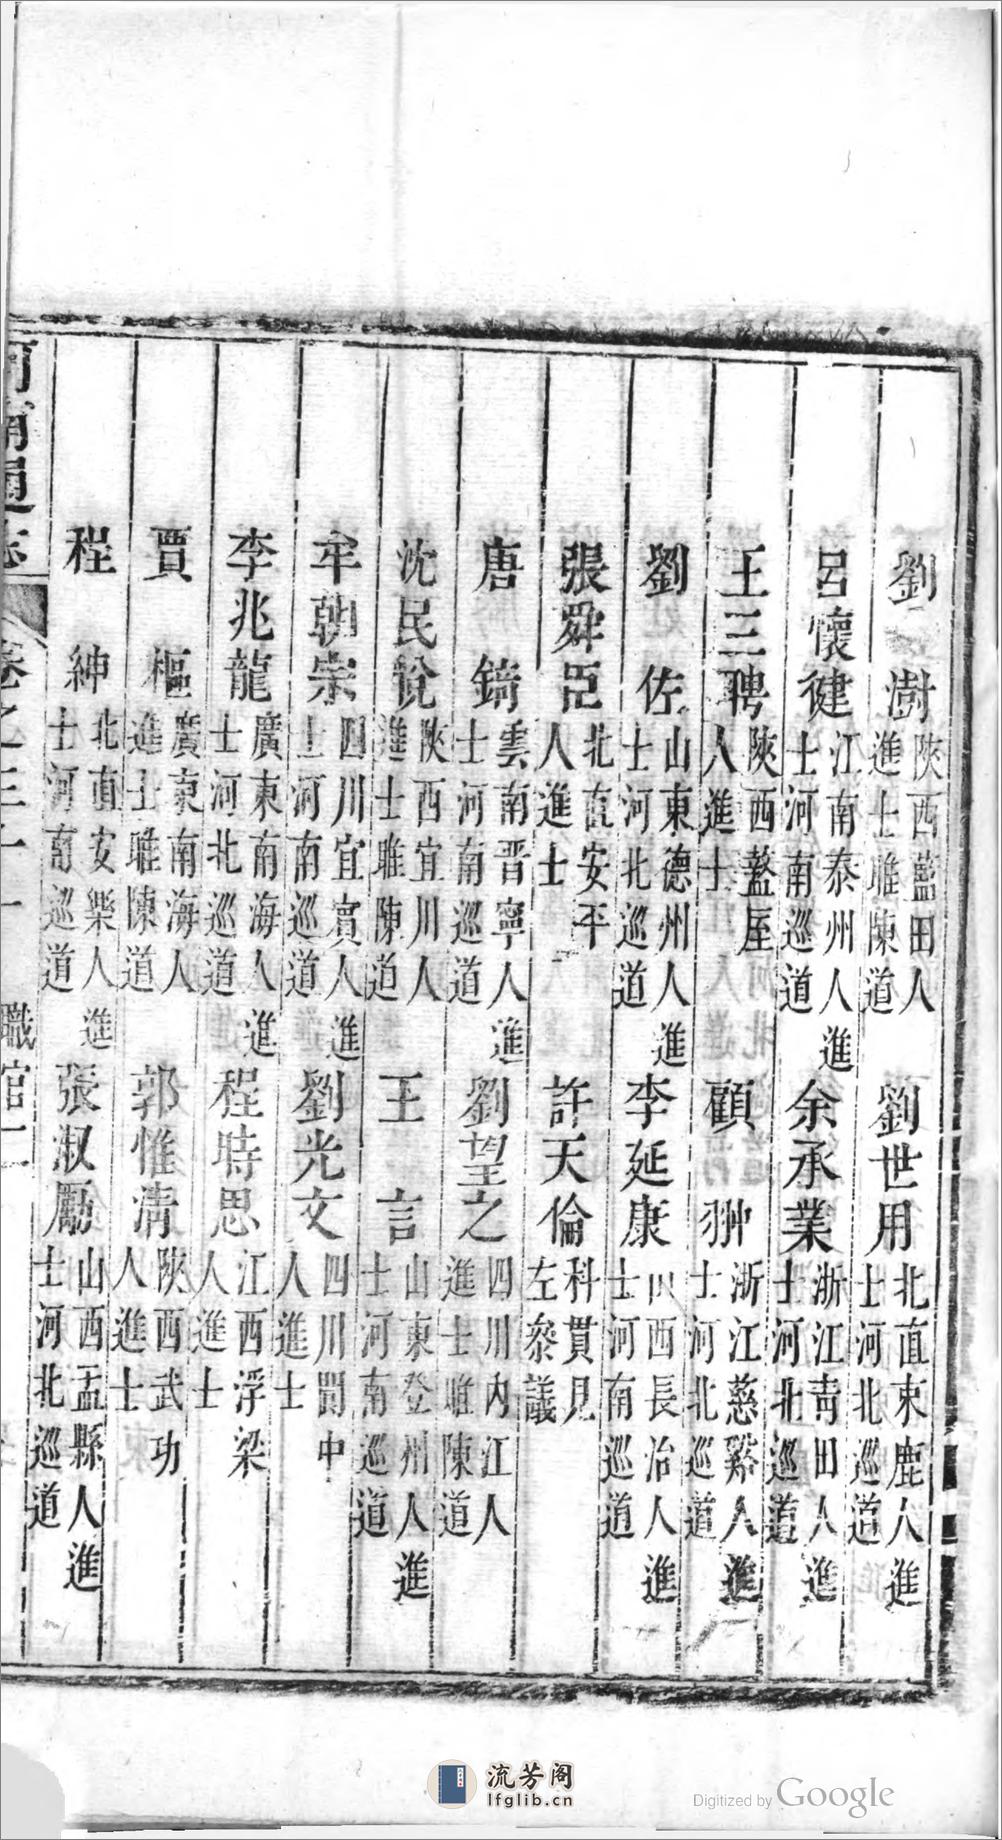 劉澍陝西藍田人進士睢陳道
劉世用北直束鹿人進士河北巡道
呂懷健江南泰州人進士河南巡道
余承業浙江靑田人進士河北巡道
王三聘陝西盩厔人進士
顧翀浙江慈谿人進士河北巡道
劉佐山東德州人進士河北巡道
李延康山西長治人進士河南巡道
張舜臣北直安平人進士
許天倫科貫見左叅議
唐錡雲南晋寧人進士河南巡道
劉望之四川內江人進士睢陳道
沈民悅陝西宜川人進士睢陳道
王言山東登州人進士河南巡道
牟朝宗四川宜賓人進士河南巡道
劉光文四川閬中人進士
李兆龍廣東南海人進士河北巡道
程時思江西浮梁人進士
賈樞廣東南海人進士睢陳道
郭惟清陝西武功人進士
程紳北直安樂人進士河南巡道
張淑勵山西盂縣人進士河北巡道
河南通志
卷之三十一
職官一
流芳阁
lfglib.cn
Digitized by Google